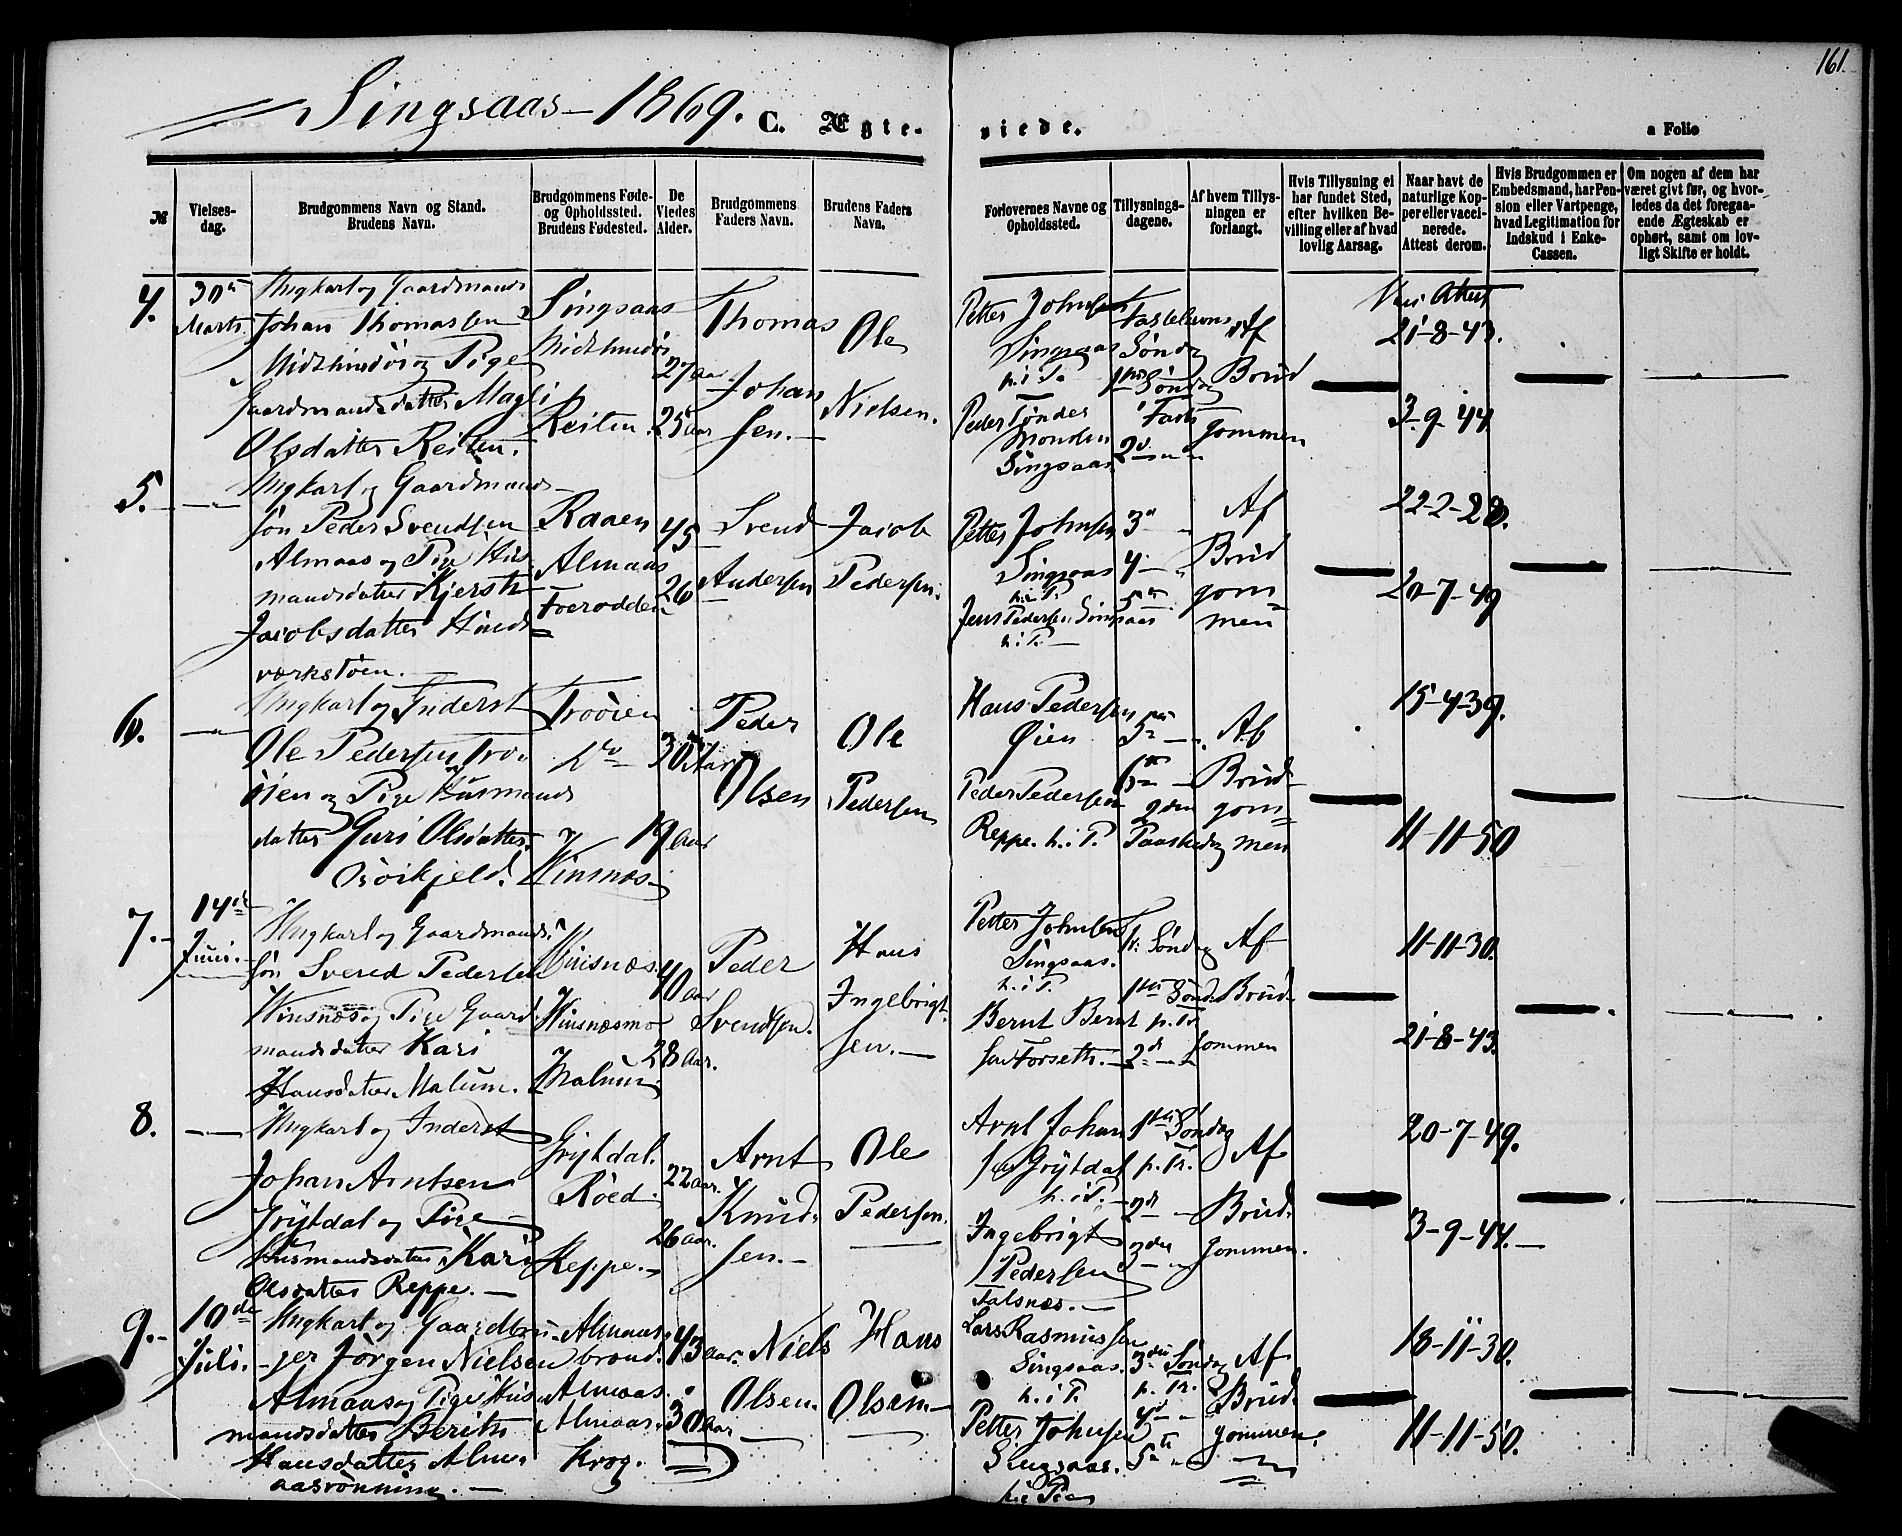 161.
Singsaas - 1869. C. Ægte- viede.
a Folio
№
Vielses-
dag.
Brudgommens Navn og Stand.
Brudens Navn.
Brudgommens Føde-
og Opholdssted.
Brudens Fødested.
De
Viedes
Alder.
Brudgommens
Faders Navn.
Brudens Faders
Navn.
Forlovernes Navne og
Opholdssted.
Tillysnings-
dagene.
Af hvem Tillys-
ningen er
forlangt.
Hvis Tillysning ei
har fundet Sted,
efter hvilken Be-
villing eller af hvad
lovlig Aarsag.
Naar havt de
naturlige Kop-
per eller vacci-
nerede.
Attest derom.
Hvis Brudgommen er
Embedsmand, har Pen-
sion eller Vartpenge,
hvad Legitimation for
Indskud i Enke-
Cassen.
Om nogen af dem har
været givt før, og hvor-
ledes da det foregaa-
ende Ægteskab er
ophørt, samt om lov-
ligt Skifte er holdt.
4.
30te
Marts.
Ungkarl og Gaardmands
Johan Thomassen
Midthundøs og Pige
Gaardmandsdatter Magli
Olsdatter Reiten.
Singsaas
Reiten.
27 aar
25 aar
Thomas
Johan
sen.
Ole
Nielsen.
Petter Johnsen
Singsaas
h. i P.
Peder Tønder
Monden
Singsaas
Fastelavns
Søndag
1ste Søndag
i Faste
2d
Af
Brud
gommen
Attest
21-8-43.
3-9-44
5.
Ungkarl og Gaardmands-
søn Peder Svendsen
Almaas og Pige Hus
mandsdatter Kjersti
Jacobsdatter Hind
værkstøen.
Raaen
Almaas
45
26
Svend
Andersen
Jacob
Pedersen.
Petter Johnsen
Singsaas
h. i P.
Jens Pedersen Singsaas
h. i P.
3
4
5
Af
Brud
gom
men
22-2-28.
20-7-49
6.
Ungkarl og Inderst
Ole Pedersen Tro
øien og Pige Husmands
datter Guri Olsdatter
Trøøien
Do
Winsnæs
30 Aar
19 Aar
Peder
Olsen
Ole
Pedersen
Hans Pedersen
Øien
Peder Pedersen
Reppe. h. i P.
5te
6te
2den
Paaskedag
Af
Brud-
gom-
men
15-4-39.
11-11-50
7.
14de
Juni.
Ungkarl og Gaardmands
søn Svend Pedersen
Winsnæs og Pige Gaard
mandsdatter Kari
Hansdatter Malum.
Winsnæs.
Winsnæsmo
Malum
40 aar
28 Aar.
Peder
Svendsen.
Hans
Ingebrigt
sen.
Petter Johnsen
Singsaas.
h. i P.
Bernt Bernt
sen Forseth.
Tr. Søndag
1ste Sønd
p. Tr.
2d
Af
Brud-
gommen
11-11-30.
21-8-43.
8.
Ungkarl og Inderst
Johan Arntsen
Grytdal og Pige
Husmandsdatter Kari
Olsdatter Reppe.
Grytdal.
Røed.
Reppe.
22 aar.
26 aar.
Arnt
Knud
sen.
Ole
Pedersen.
Arnt Johan
sen Grytdal
h. i P.
Ingebrigt
Pedersen
Talsnæs.
1ste Søndag
p. Tr.
2d
3die
Af
Brud-
gommen.
20-7-49.
3-9-44.
9.
10de
Juli.
Ungkarl og Gaardbru-
ger Jørgen Nielsen
Almaas og Pige Hus
mandsdatter Berith
Hansdatter Alm-
aasrønning.
Almaas
Almaas.
Almaas.
Krog.
43 aar.
30 aar
Niels
Olsen.
Hans
Olsen.
Lars Rasmussen
Singsaas.
h. i P.
Petter Johnsen
Singsaas.
3die Søndag
p. Tr.
4
5te
Af
Brud-
gommen.
18-11-30.
11-11-50.